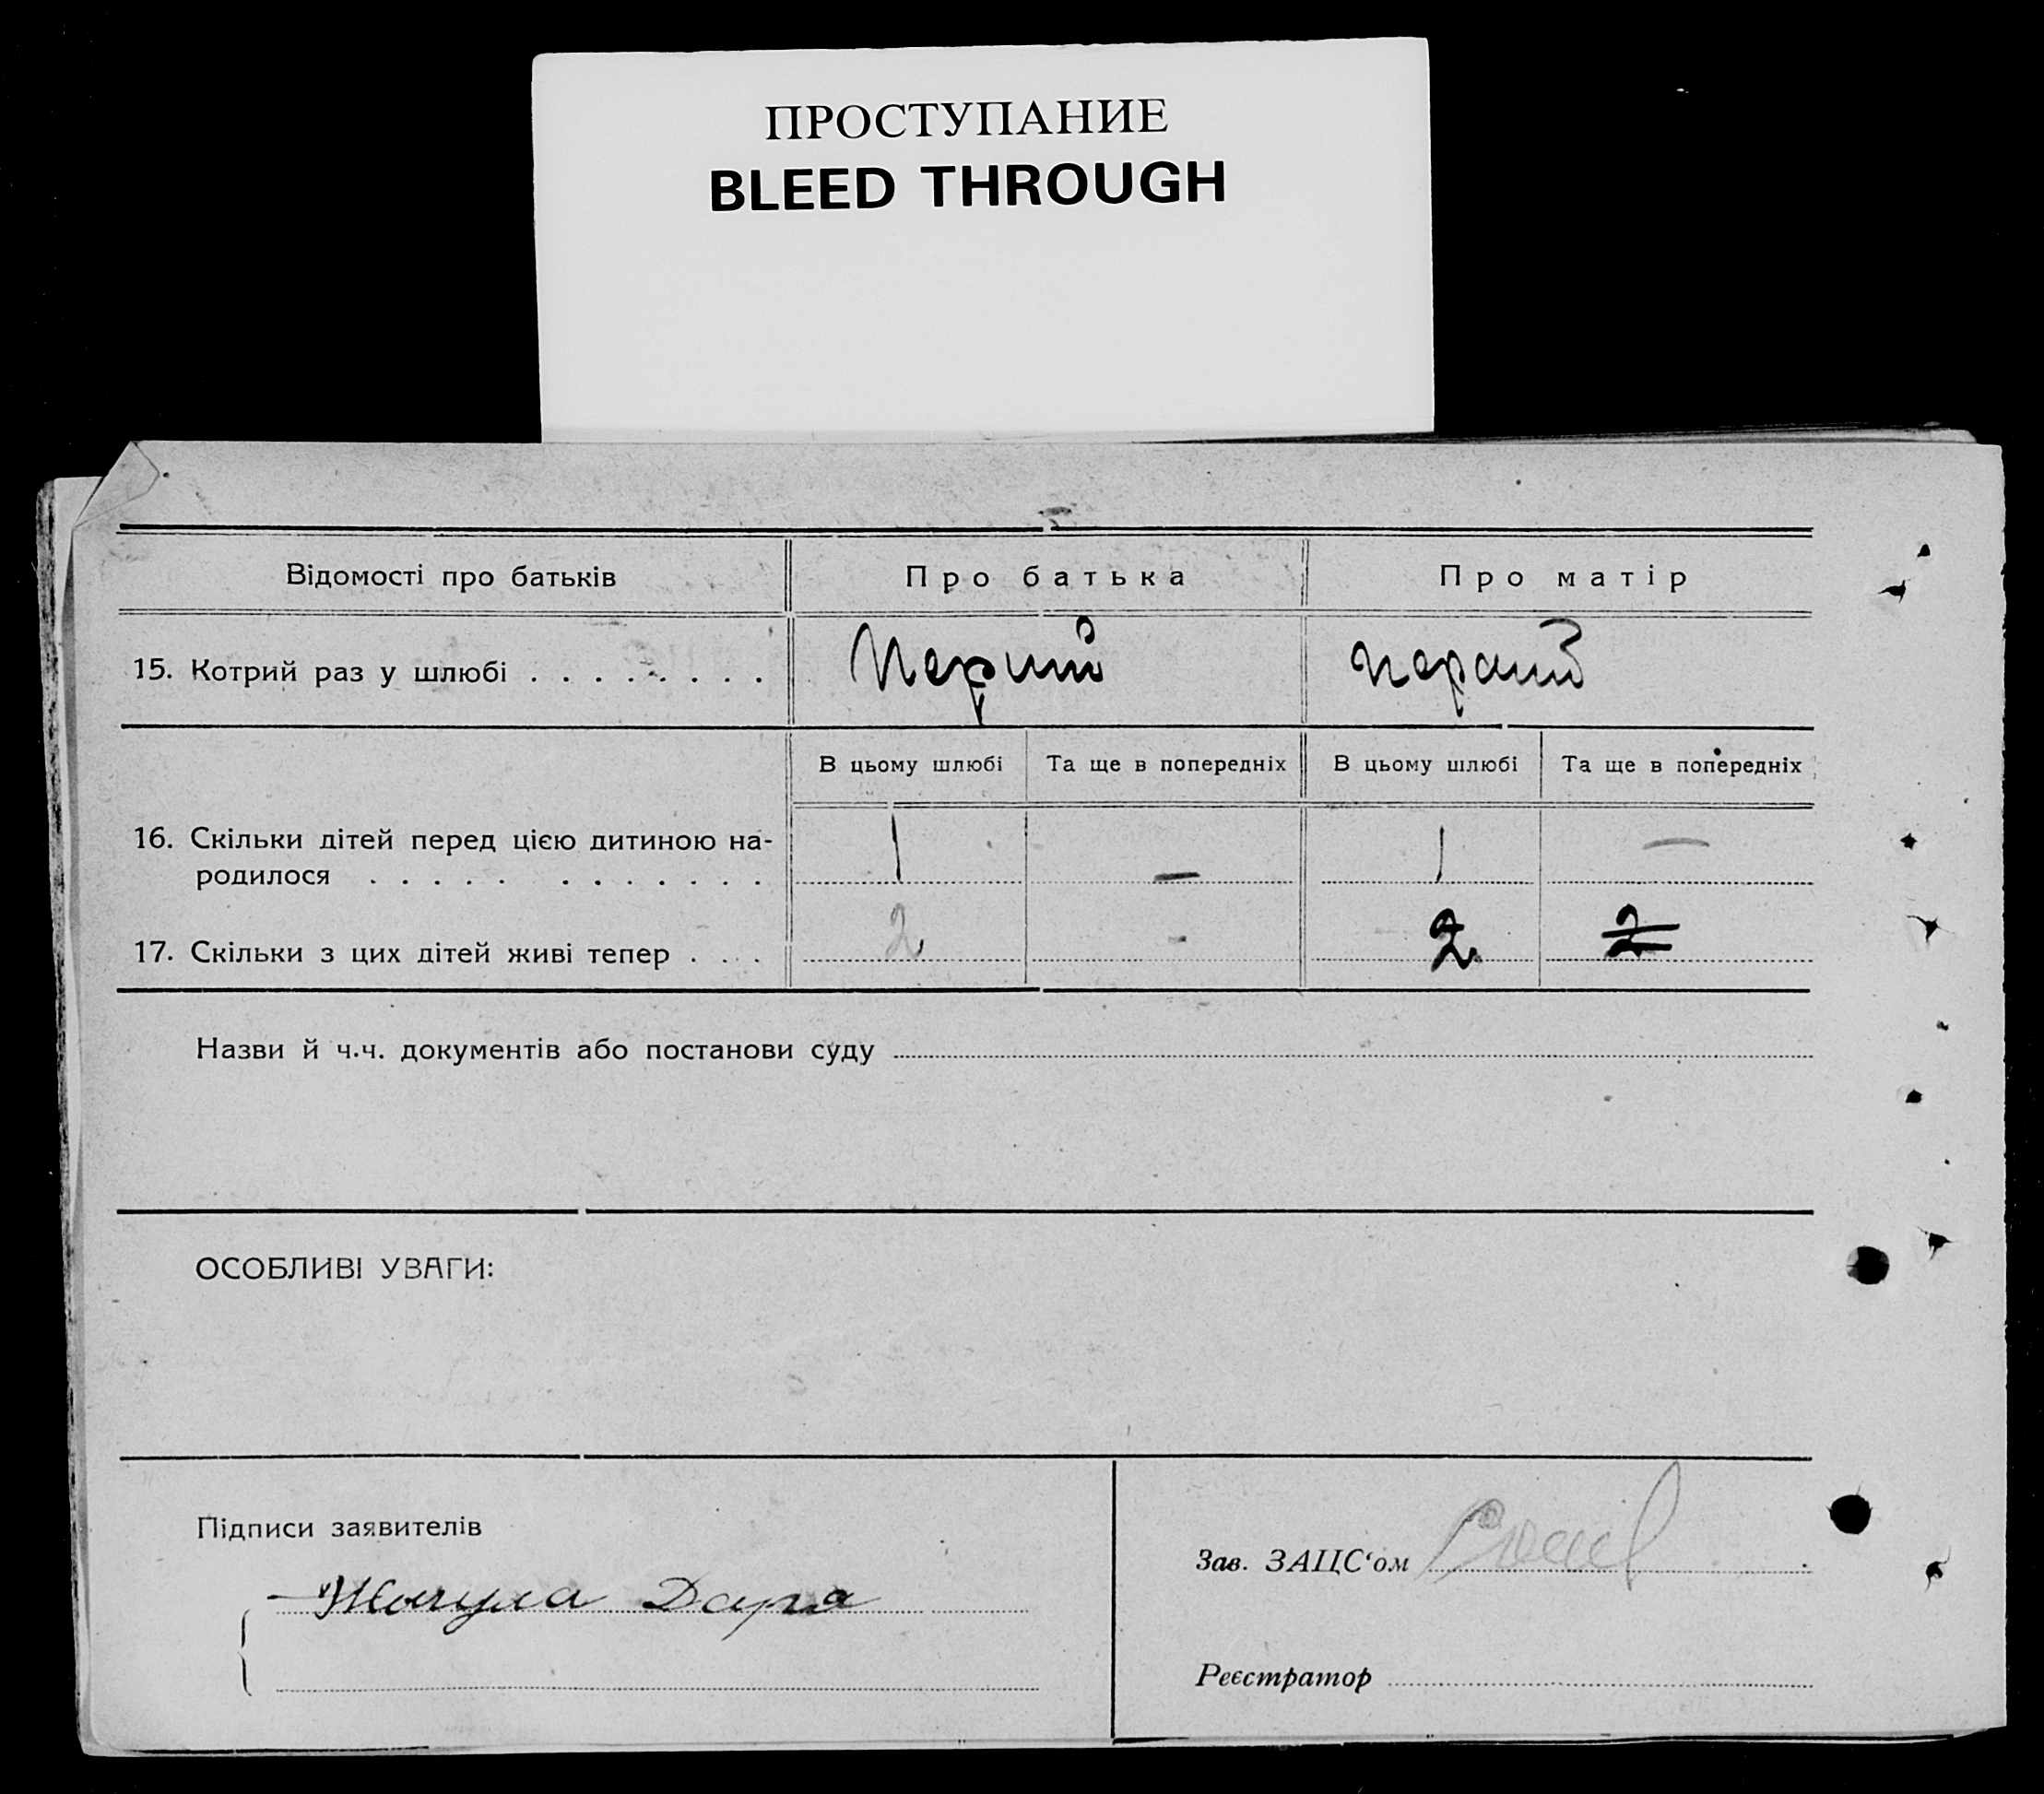 ПРОСТУПАНИЕ
BLEED THROUGH
Відомості про батьків Про батька Про матір
15. Котрий раз у шлюбі . . . . . . . . Перший перший
В цьому шлюбі Та ще в попередніх В цьому шлюбі Та ще в попередніх
16. Скільки дітей перед цією дитиною на-
родилося . . . . . . . . . . . . 1 — 1 —
17. Скільки з цих дітей живі тепер . . . 2 - 2 2
Назви й ч.ч. документів або постанови суду
ОСОБЛИВІ УВАГИ:
Підписи заявителів
Зав. ЗАЦС‘ом
Дарія
Реєстратор